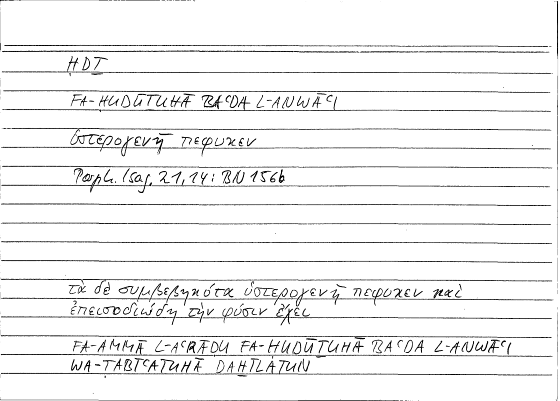 ḤDṮ
FA-ḤUDŪṮUHĀ BAʿDA L-ANWĀʿI
ὑστερογενῆ πέφυκεν
Porph. Isag. 21, 14: BN 156b
τὰ δὲ συμβεβηκότα ὑστερογενῆ πέφυκεν καὶ
ἐπεισοδιώδη τὴν φύσιν ἔχει
FA-AMMĀ L-AʿRĀḌU FA-ḤUDŪṮUHĀ BAʿDA L-ANWĀʿI
WA-ṬABĪʿATUHĀ DAḪĪLATUN